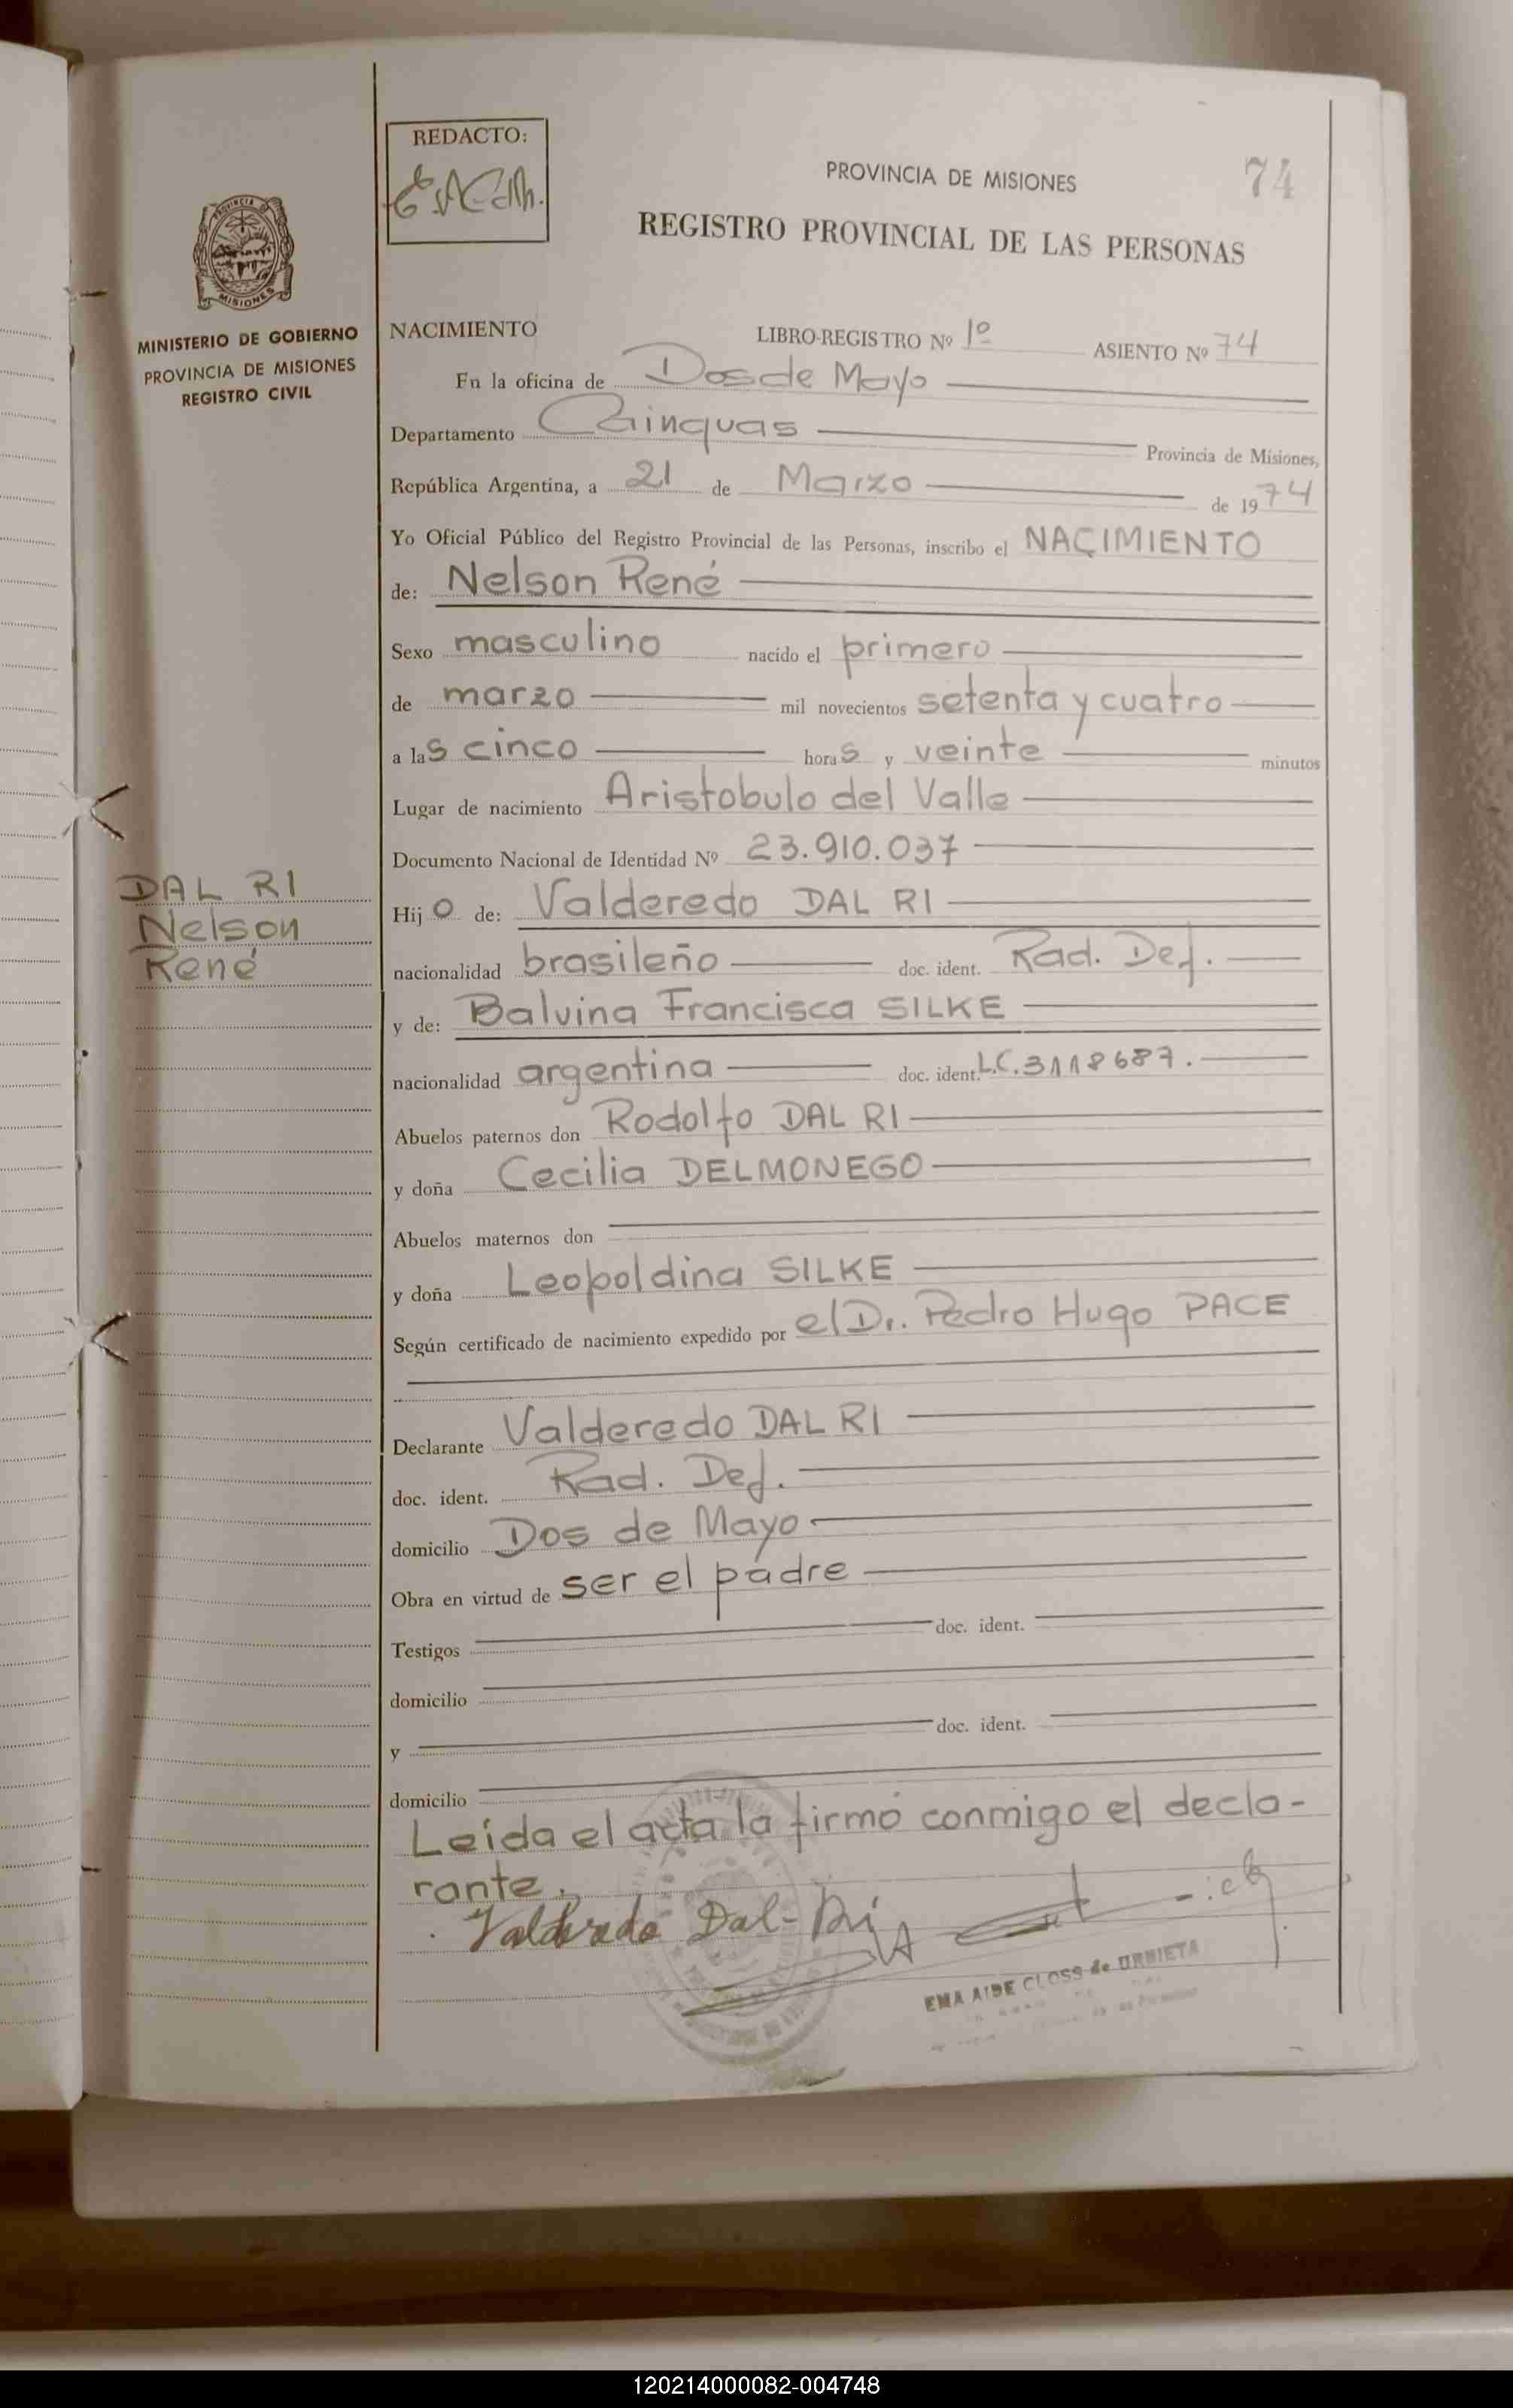 REDACTO:
PROVINCIA DE MISIONES
74
REGISTRO PROVINCIAL DE LAS PERSONAS
PROVINCIA DE
MISIONES
MINISTERIO DE GOBIERNO
PROVINCIA DE MISIONES
REGISTRO CIVIL
NACIMIENTO LIBRO-REGISTRO Nº 1º ASIENTO Nº 74
En la oficina de Dos de Mayo
Departamento Cainguas Provincia de Misiones,
República Argentina, a 21 de Marzo de 1974
Yo Oficial Público del Registro Provincial de las Personas, inscribo el NACIMIENTO
de: Nelson René
Sexo masculino nacido el primero
de marzo mil novecientos setenta y cuatro
a las cinco horas y veinte minutos
Lugar de nacimiento Aristobulo del Valle
Documento Nacional de Identidad Nº 23.910.037
DAL RI
Nelson
René
Hijo de: Valderedo DAL RI
nacionalidad brasileño doc. ident. Rad. Def.
y de: Balvina Francisca SILKE
nacionalidad argentina doc. ident. L.C. 3118687.
Abuelos paternos don Rodolfo DAL RI
y doña Cecilia DELMONEGO
Abuelos maternos don
y doña Leopoldina SILKE
Según certificado de nacimiento expedido por el Dr. Pedro Hugo PACE
Declarante Valderedo DAL RI
doc. ident. Rad. Def.
domicilio Dos de Mayo
Obra en virtud de ser el padre
Testigos doc. ident.
domicilio
y doc. ident.
domicilio
Leída el acta la firmó conmigo el decla-
rante.
Valderedo Dal-Ri
EMA AIDE CLOSS de URBIETA
120214000082-004748